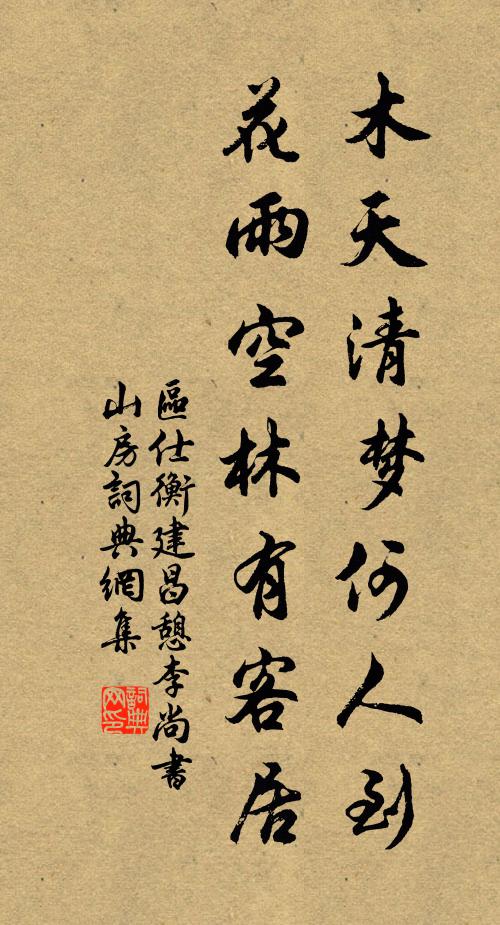 木天清梦何人到
花雨空林有客居
區仕衡建昌憩李尚書
山房詞典網集
詞典
网印